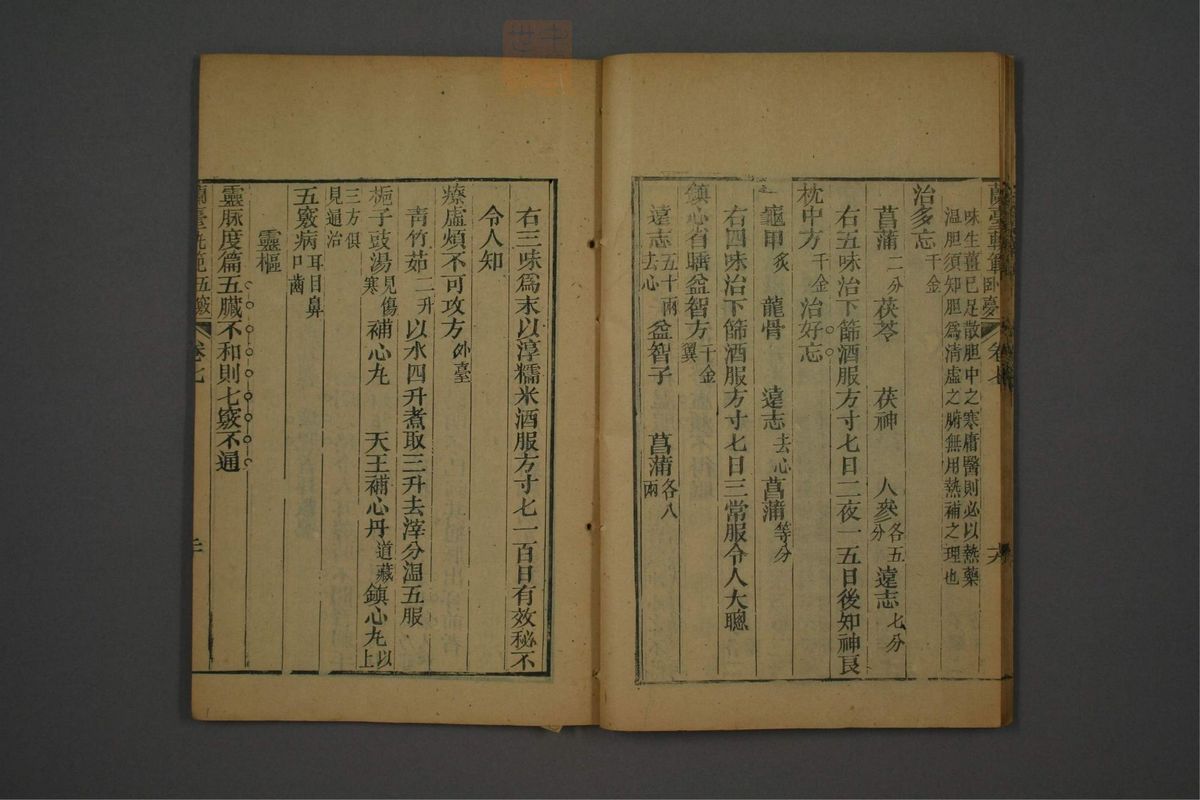 蘭臺軌範卧夢 卷七 六
味生薑已足散胆中之寒庸醫則必以熱藥
温胆須知胆爲清虛之腑無用熱補之理也
治多忘千金
菖蒲二分 茯苓 茯神 人參各五分 遠志七分
右五味治下篩酒服方寸匕日二夜一五日後知神良
枕中方千金 治好忘
龜甲炙 龍骨 遠志去心 菖蒲等分
右四味治下篩酒服方寸匕日三常服令人大聰
鎮心省睡益智方千金翼
遠志五十兩去心 益智子 菖蒲各八兩
右三味爲末以淳糯米酒服方寸匕一百日有效秘不
令人知
療虛煩不可攻方外臺
青竹茹二升 以水四升煮取三升去滓分温五服
梔子豉湯見傷寒 補心丸 天王補心丹道藏 鎮心丸以上
三方俱見通治
五竅病耳目鼻口齒
靈樞
靈脈度篇五臟不和則七竅不通
蘭臺軌範五竅 卷七